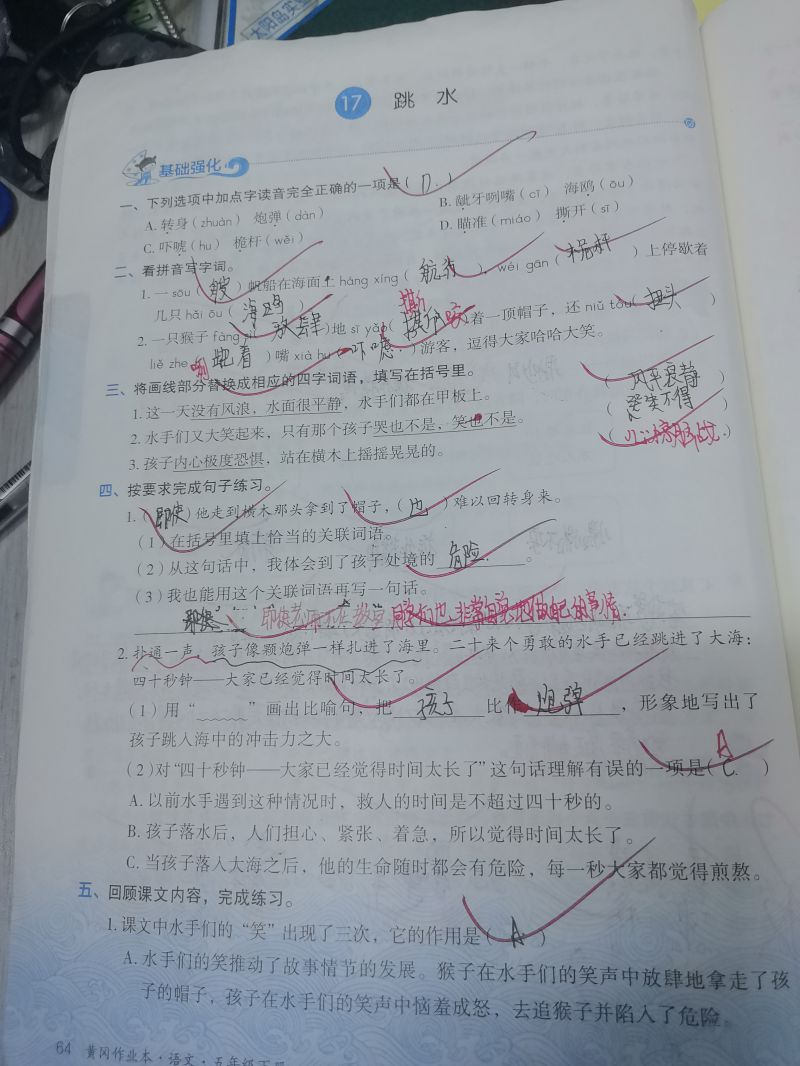 太阳岛实
17 跳水
基础强化
一、下列选项中加点字读音完全正确的一项是( D. )
A. 转身(zhuàn) 炮弹(dàn) B. 龇牙咧嘴(cī) 海鸥(ōu)
C. 吓唬(hu) 桅杆(wěi) D. 瞄准(miáo) 撕开(sī)
二、看拼音写字词。
1. 一 sōu( 艘 )帆船在海面上 háng xíng( 航行 ),wéi gān( 桅杆 )上停歇着
几只 hǎi ōu( 海鸥 )。
撕
2. 一只猴子 fàng sì( 放肆 )地 sī yǎo( 咬 )着一顶帽子,还 niǔ tóu( 扭头 )
liě zhe( 咧 着 )嘴 xià hu( 吓唬 )游客,逗得大家哈哈大笑。
三、将画线部分替换成相应的四字词语,填写在括号里。
1. 这一天没有风浪,水面很平静,水手们都在甲板上。 ( 风平浪静 )
2. 水手们又大笑起来,只有那个孩子哭也不是,笑也不是。 ( 哭笑不得 )
3. 孩子内心极度恐惧,站在横木上摇摇晃晃的。 ( 心惊胆战 )
四、按要求完成句子练习。
1. ( 即使 )他走到横木那头拿到了帽子,( 也 )难以回转身来。
(1)在括号里填上恰当的关联词语。
(2)从这句话中,我体会到了孩子处境的 危险 。
(3)我也能用这个关联词语再写一句话。
即使 即使老师不在教室,同学们也非常自觉地做自己的事情.
2. 扑通一声,孩子像颗炮弹一样扎进了海里。二十来个勇敢的水手已经跳进了大海:
四十秒钟——大家已经觉得时间太长了。
(1)用“﹏﹏”画出比喻句,把 孩子 比作 炮弹 ,形象地写出了
孩子跳入海中的冲击力之大。
A
(2)对“四十秒钟——大家已经觉得时间太长了”这句话理解有误的一项是( C. )
A. 以前水手遇到这种情况时,救人的时间是不超过四十秒的。
B. 孩子落水后,人们担心、紧张、着急,所以觉得时间太长了。
C. 当孩子落入大海之后,他的生命随时都会有危险,每一秒大家都觉得煎熬。
五、回顾课文内容,完成练习。
1. 课文中水手们的“笑”出现了三次,它的作用是( A )
A. 水手们的笑推动了故事情节的发展。猴子在水手们的笑声中放肆地拿走了孩
子的帽子,孩子在水手们的笑声中恼羞成怒,去追猴子并陷入了危险。
64 黄冈作业本·语文·五年级下册